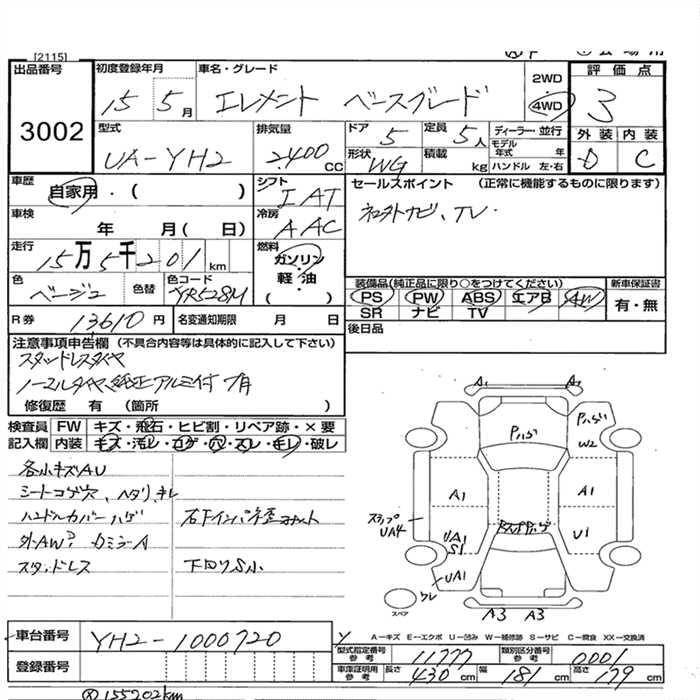 [2115]
出品番号
3002
初度登録年月
15 5月
車名・グレード
エレメント ベースグレード
2WD
4WD
評価点
3
外装 内装
D C
型式
UA-YH2
排気量
2.400 CC
ドア
5
定員
5人
ディーラー・並行
モデル年式 年
形状
WG
積載
kg
ハンドル 左・右
車歴
自家用・( )
シフト
I AT
セールスポイント (正常に機能するものに限ります)
社外ナビ、TV・
車検
年 月( 日)
冷房
AAC
走行
15万5千201km
燃料
ガソリン・軽油
( )
色
ベージュ
色替
色コード
YR528M
装備品(純正品に限り○をつけてください)
PS PW ABS エアB AW
SR ナビ TV
新車保証書
有・無
R券
13610円
名変通知期限 月 日
後日品
注意事項申告欄 (不具合内容等は具体的に記入して下さい)
スタッドレスタイヤ
ノーマルタイヤ、純正アルミ付
修復歴 有 (箇所 )
検査員記入欄
FW キズ・飛石・ヒビ割・リペア跡・×要
内装 キズ・汚レ・コゲ・穴・スレ・キレ・破レ
各小キズAU
シートコゲ穴、ヘタリ、キレ
ハンドルカバーハゲ
外AW
スタッドレス
下回りS小
A1 A1
Pハゲ
Pハゲ
W2
A1 A1
ステップ
UA4
UA1
S1
U1
UA1
スペア
A3 A3
A−キズ E−エクボ U−凹み W−補修跡 S−サビ C−腐食 XX−交換済
車台番号
YH2-1000720
登録番号
型式指定番号 参考
11777
類別区分番号 参考
0001
車庫証明用 参考
長さ 430cm
幅 181cm
高さ 179cm
155202km